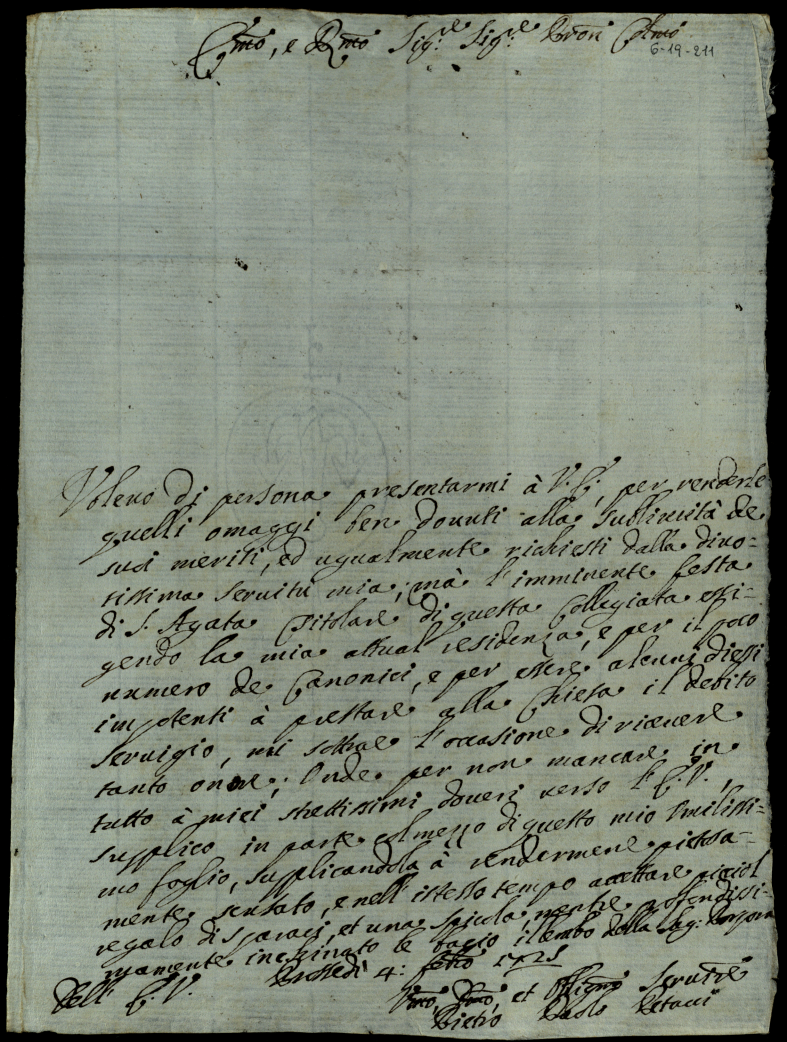 Em̃o, e Rm̃o Sig.re Sig.re Pron̄ Col̃mo
6-19-211
Voleuo di persona presentarmi à V. E., per renderle
quelli omaggi ben douuti alla sublimità de
suoi meriti, ed ugualmente richiesti dalla diuo-
tissima seruitù mia; mà l'imminente festa
di S. Agata Titolare di questa Collegiata essi-
gendo la mia attual residenza, e per il poco
numero de Canonici, e per essere alcuni d'essi
impotenti à prestare alla Chiesa il debito
seruigio, mi sottrae l'occasione di riceuere
tanto onore; Onde per non mancare in
tutto à miei strettissimi doueri verso l'E. V.,
supplico in parte col mezzo di questo mio Vmilissi-
mo foglio, supplicandola à rendermene pietosa-
mente scusato, e nell'istesso tempo accettare picciol
regalo di sparaci, et una spicula, mentre profondissi-
mamente inchinato le bacio il lembo della Sag. Porpora
4: febro 1725
Dell' E. V.
Vmo, Dmo, et Obligmo Seruire
Pietro Paolo